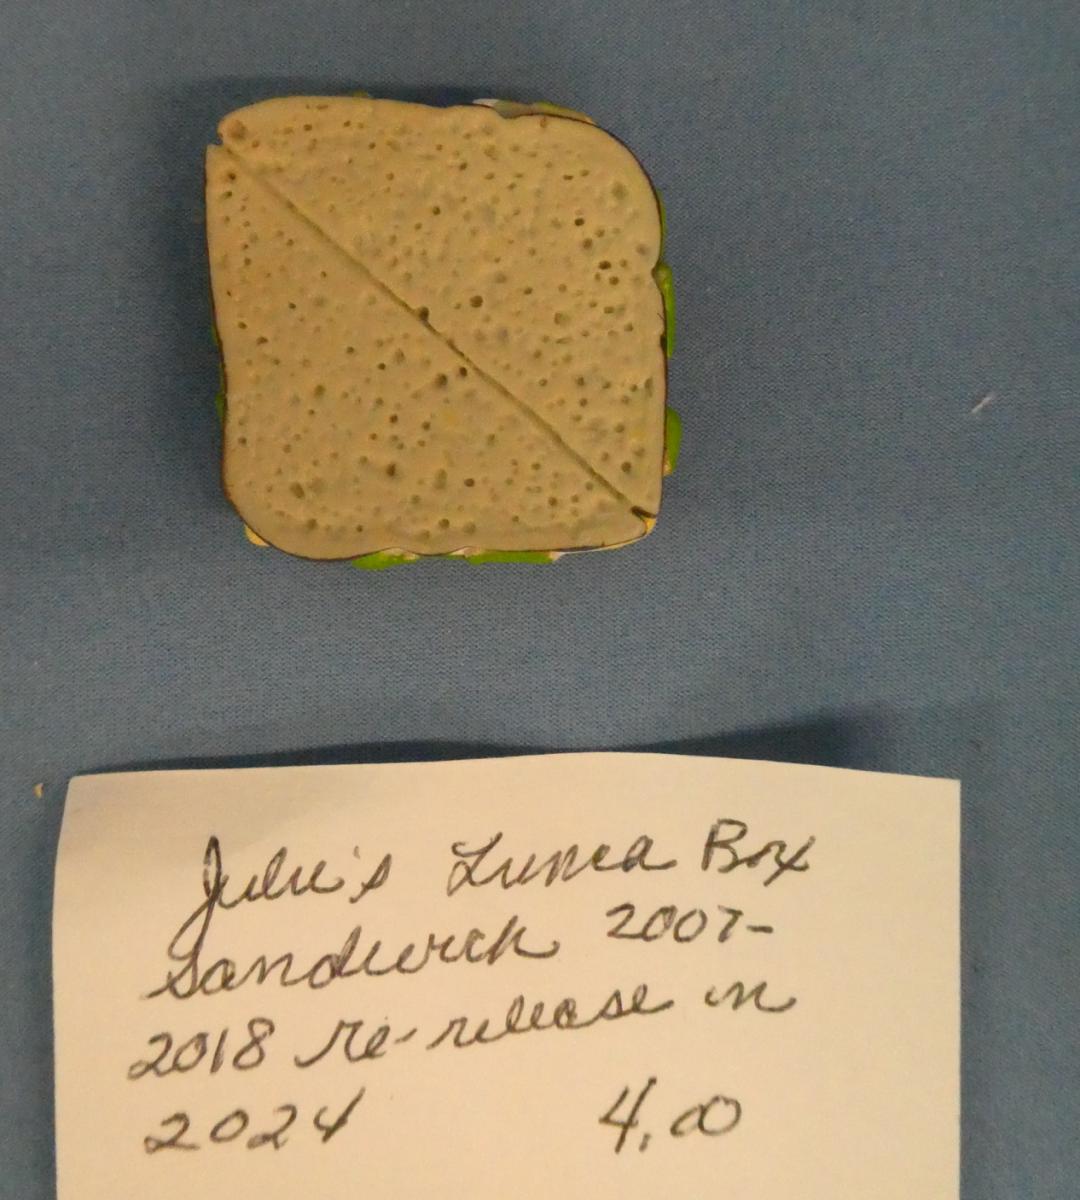 Julie's Lunch Box
Sandwich 2007-
2018 re-release in
2024 4.00